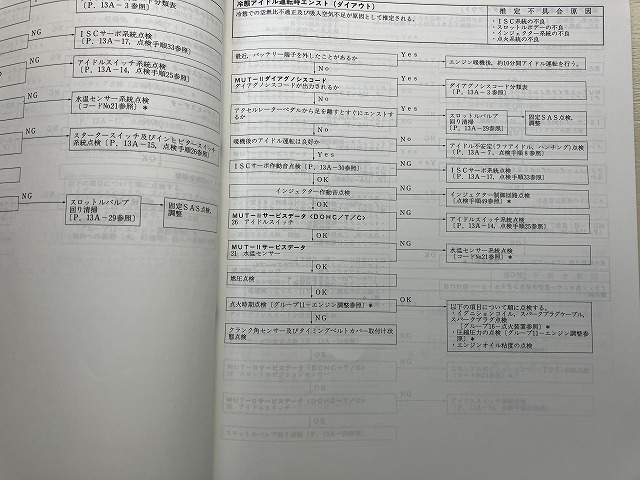 ードコード分類表
〔P．13A－3参照〕
NG
ISCサーボ系統点検
〔P．13A－17，点検手順33参照〕
NG
アイドルスイッチ系統点検
〔P．13A－14，点検手順25参照〕
NG
水温センサー系統点検
〔コード№21参照〕＊
NG
スタータースイッチ及びインヒビタースイッチ
系統点検〔P．13A－15，点検手順26参照〕
NG
スロットルバルブ
回り清掃
〔P．13A－29参照〕
固定SAS点検，
調整
冷態アイドル運転時エンスト（ダイアウト）
冷態での空燃比不適正及び吸入空気不足が原因として推定される。
推定不具合原因
・ISC系統の不良
・スロットルボデーの不良
・インジェクター系統の不良
・点火系統の不良
最近，バッテリー端子を外したことがあるか
Yes
エンジン暖機後，約10分間アイドル運転を行う。
No
MUT－Ⅱダイアグノシスコード
ダイアグノシスコードが出力されるか
Yes
ダイアグノシスコード分類表
〔P．13A－3参照〕
No
アクセルレーターペダルから足を離すとすぐにエンストす
るか
Yes
スロットルバルブ
回り清掃
〔P．13A－29参照〕
固定SAS点検，
調整
No
暖機後のアイドル運転は良好か
No
アイドル不安定（ラフアイドル，ハンチング）点検
〔P．13A－7，点検手順8参照〕
Yes
ISCサーボ作動音点検〔P．13A－30参照〕
NG
ISCサーボ系統点検
〔P．13A－17，点検手順33参照〕
OK
インジェクター作動音点検
NG
インジェクター制御回路点検
〔点検手順49参照〕＊
OK
MUT－Ⅱサービスデータ〈DOHC／T／C〉
26 アイドルスイッチ
NG
アイドルスイッチ系統点検
〔P．13A－14，点検手順25参照〕
OK
MUT－Ⅱサービスデータ
21 水温センサー
NG
水温センサー系統点検
〔コード№21参照〕＊
OK
燃圧点検
OK
点火時期点検〔グループ11－エンジン調整参照〕＊
OK
以下の項目について順に点検する。
・イグニションコイル，スパークプラグケーブル，
スパークプラグ点検
〔グループ16－点火装置参照〕＊
・圧縮圧力の点検〔グループ11－エンジン調整参
照〕＊
・エンジンオイル粘度の点検
NG
クランク角センサー及びタイミングベルトカバー取付け状
態点検